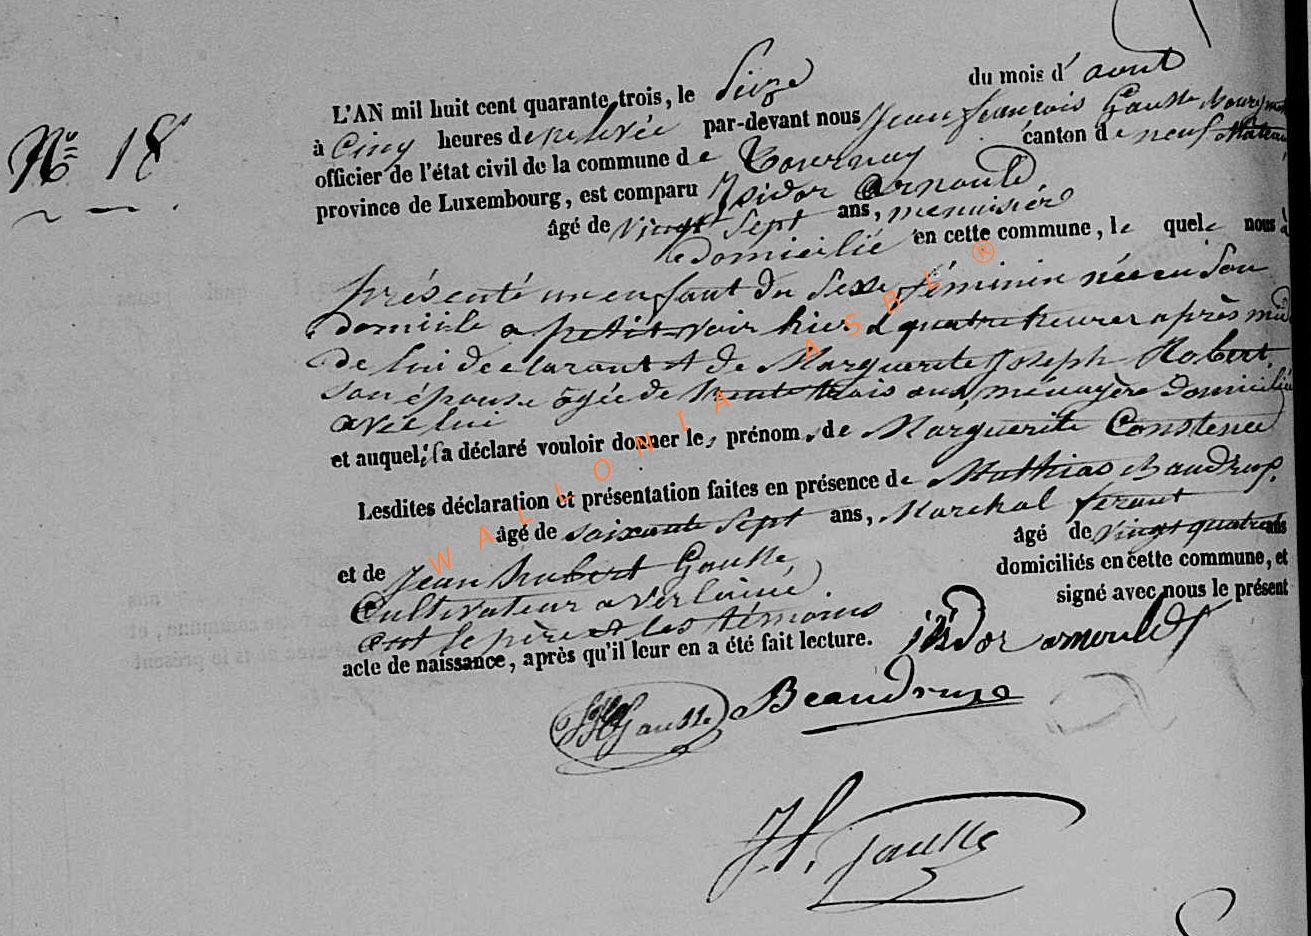 N° 18
L'AN mil huit cent quarante trois, le Seize du mois d'aout
à Cinq heures de relevée par-devant nous Jean françois Gausse Bourgmes
officier de l'état civil de la commune de Tournay canton de neufchâteau
province de Luxembourg, est comparu Isidor Arnould
âgé de vingt Sept ans, menuisier
domicilié en cette commune, le quel nous à
présenté un enfant du Sexe féminin née en Son
domicile a petit-voir hier à quatre heures après midi
de lui déclarant et de Marguerite Joseph Robert
son épouse âgée de trente trois ans, ménagère domiciliée
avec lui
et auquel il a déclaré vouloir donner les prénoms de Marguerite Constence
Lesdites déclaration et présentation faites en présence de Mathias Baudruse
âgé de soixante Sept ans, Marchal ferant
et de Jean hubert Gausse, âgé de vingt quatre ans
Cultivateur a verlaine domiciliés en cette commune, et
ont le père et les témoins signé avec nous le présent
acte de naissance, après qu'il leur en a été fait lecture.
isidor arnould
JH Gausse Beaudruse
J.f. Gausse
WALLONIA ASBL ®